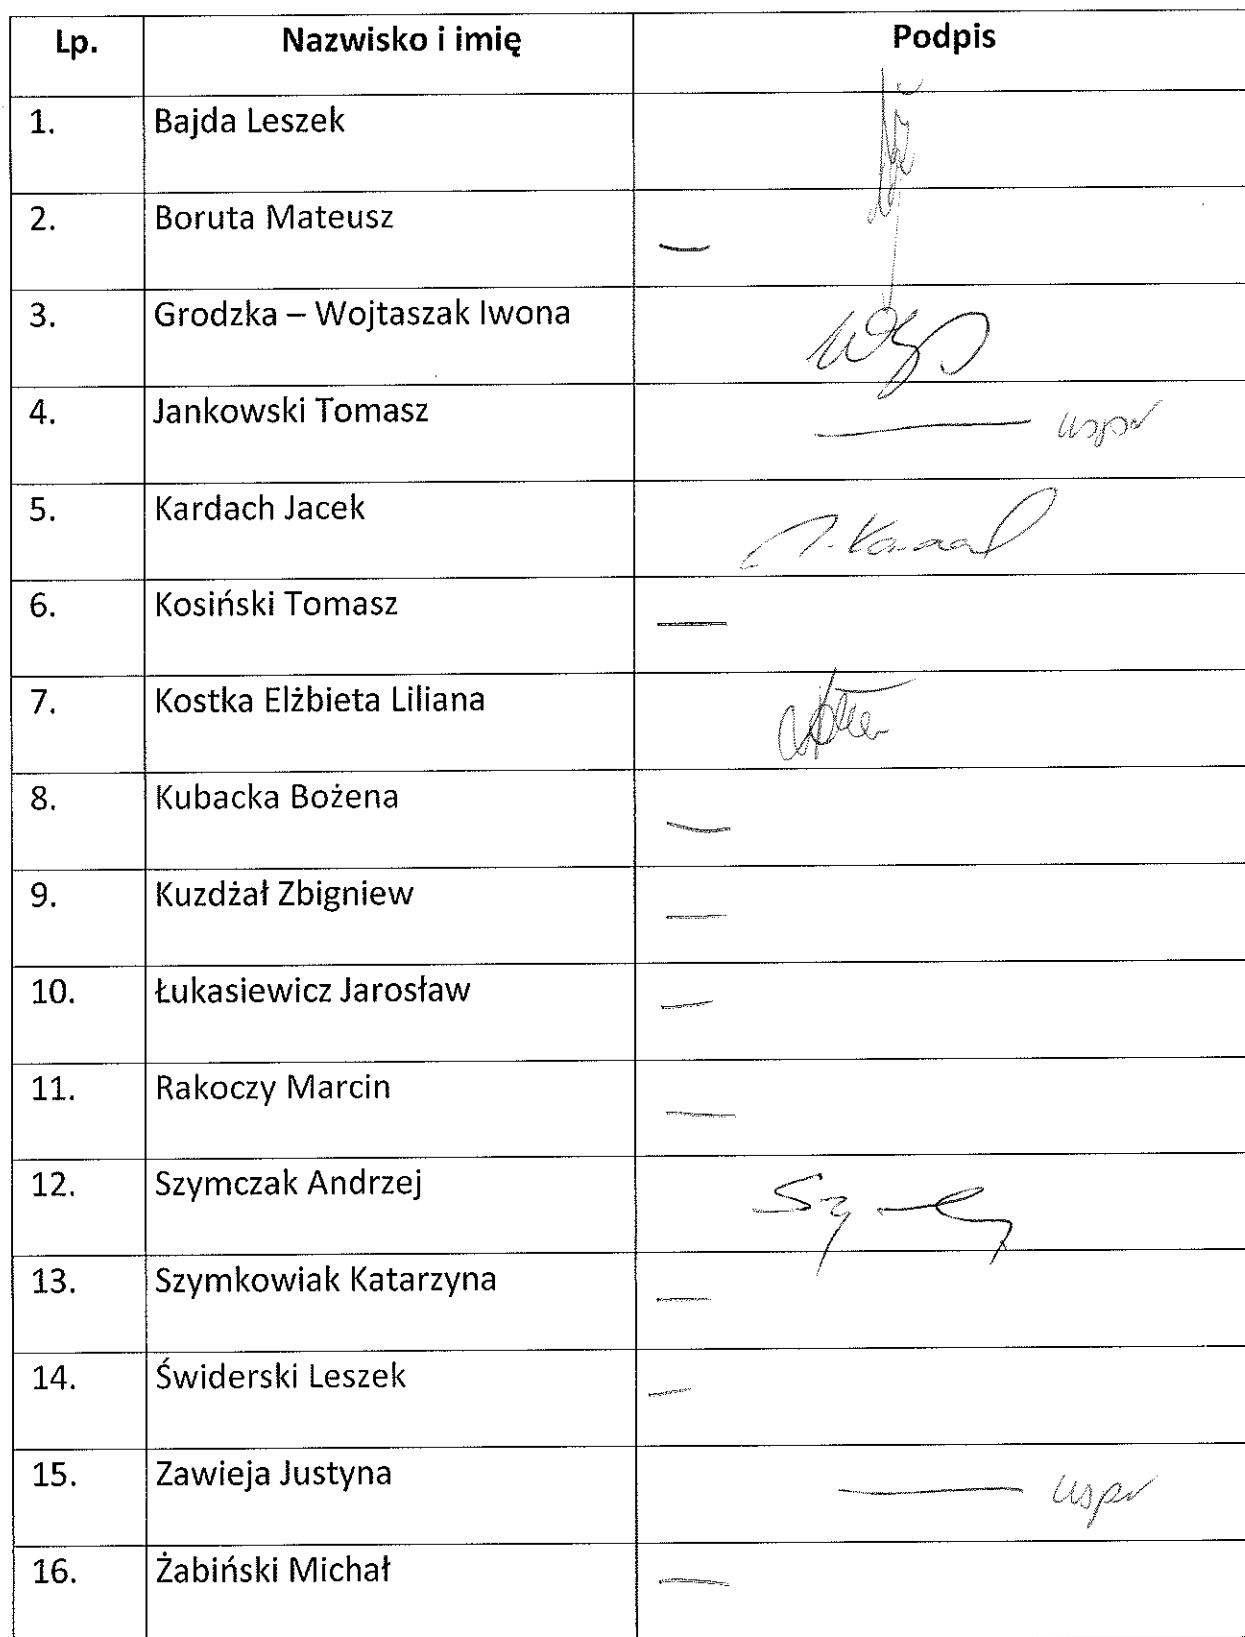 Lp. Nazwisko i imię Podpis
1. Bajda Leszek
2. Boruta Mateusz —
3. Grodzka – Wojtaszak Iwona
4. Jankowski Tomasz — uspr
5. Kardach Jacek
6. Kosiński Tomasz —
7. Kostka Elżbieta Liliana
8. Kubacka Bożena —
9. Kuzdżał Zbigniew —
10. Łukasiewicz Jarosław —
11. Rakoczy Marcin —
12. Szymczak Andrzej
13. Szymkowiak Katarzyna —
14. Świderski Leszek —
15. Zawieja Justyna — uspr
16. Żabiński Michał —